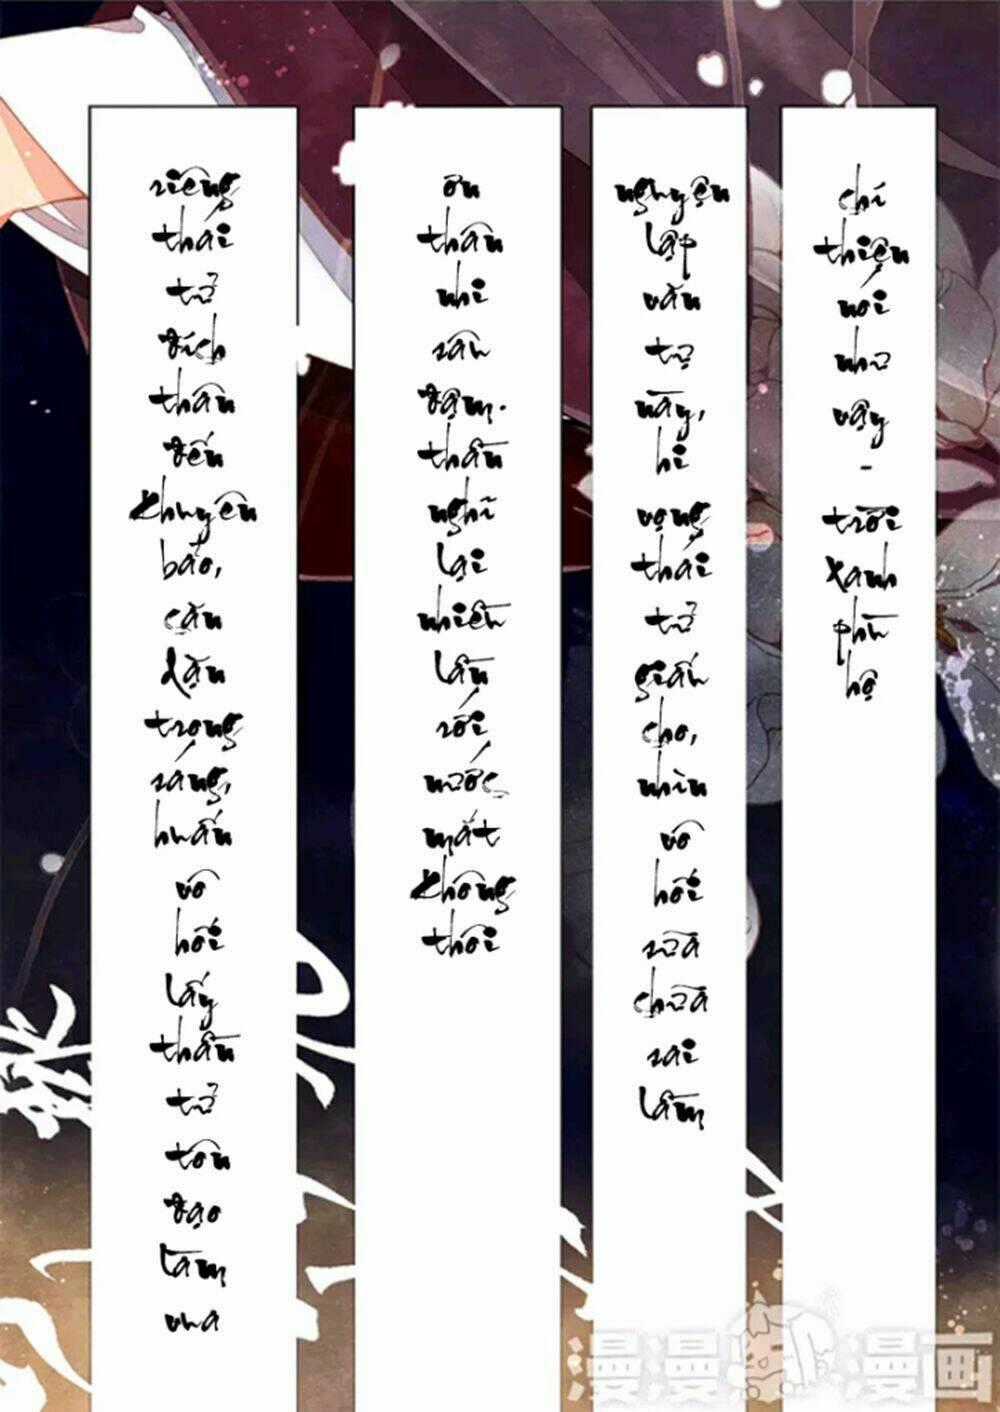 riêng
thái
tử
đích
thân
đến
khuyên
bảo,
căn
dặn
trọng
sáng,
huấn
vô
hối
lấy
thần
tử
tôn
đạo
làm
vua
ơn
thâu
nhi
sâu
đậm.
thần
nghĩ
lại
nhiều
lần
rồi
nước
mắt
không
thôi
nguyện
lập
văn
tự
này,
hi
vọng
thái
tử
giấu
cho,
nhìn
vô
hối
sửa
chữa
sai
lầm
chí
thiện
nói
như
vậy
-
trời
xanh
phù
hộ
漫漫漫画